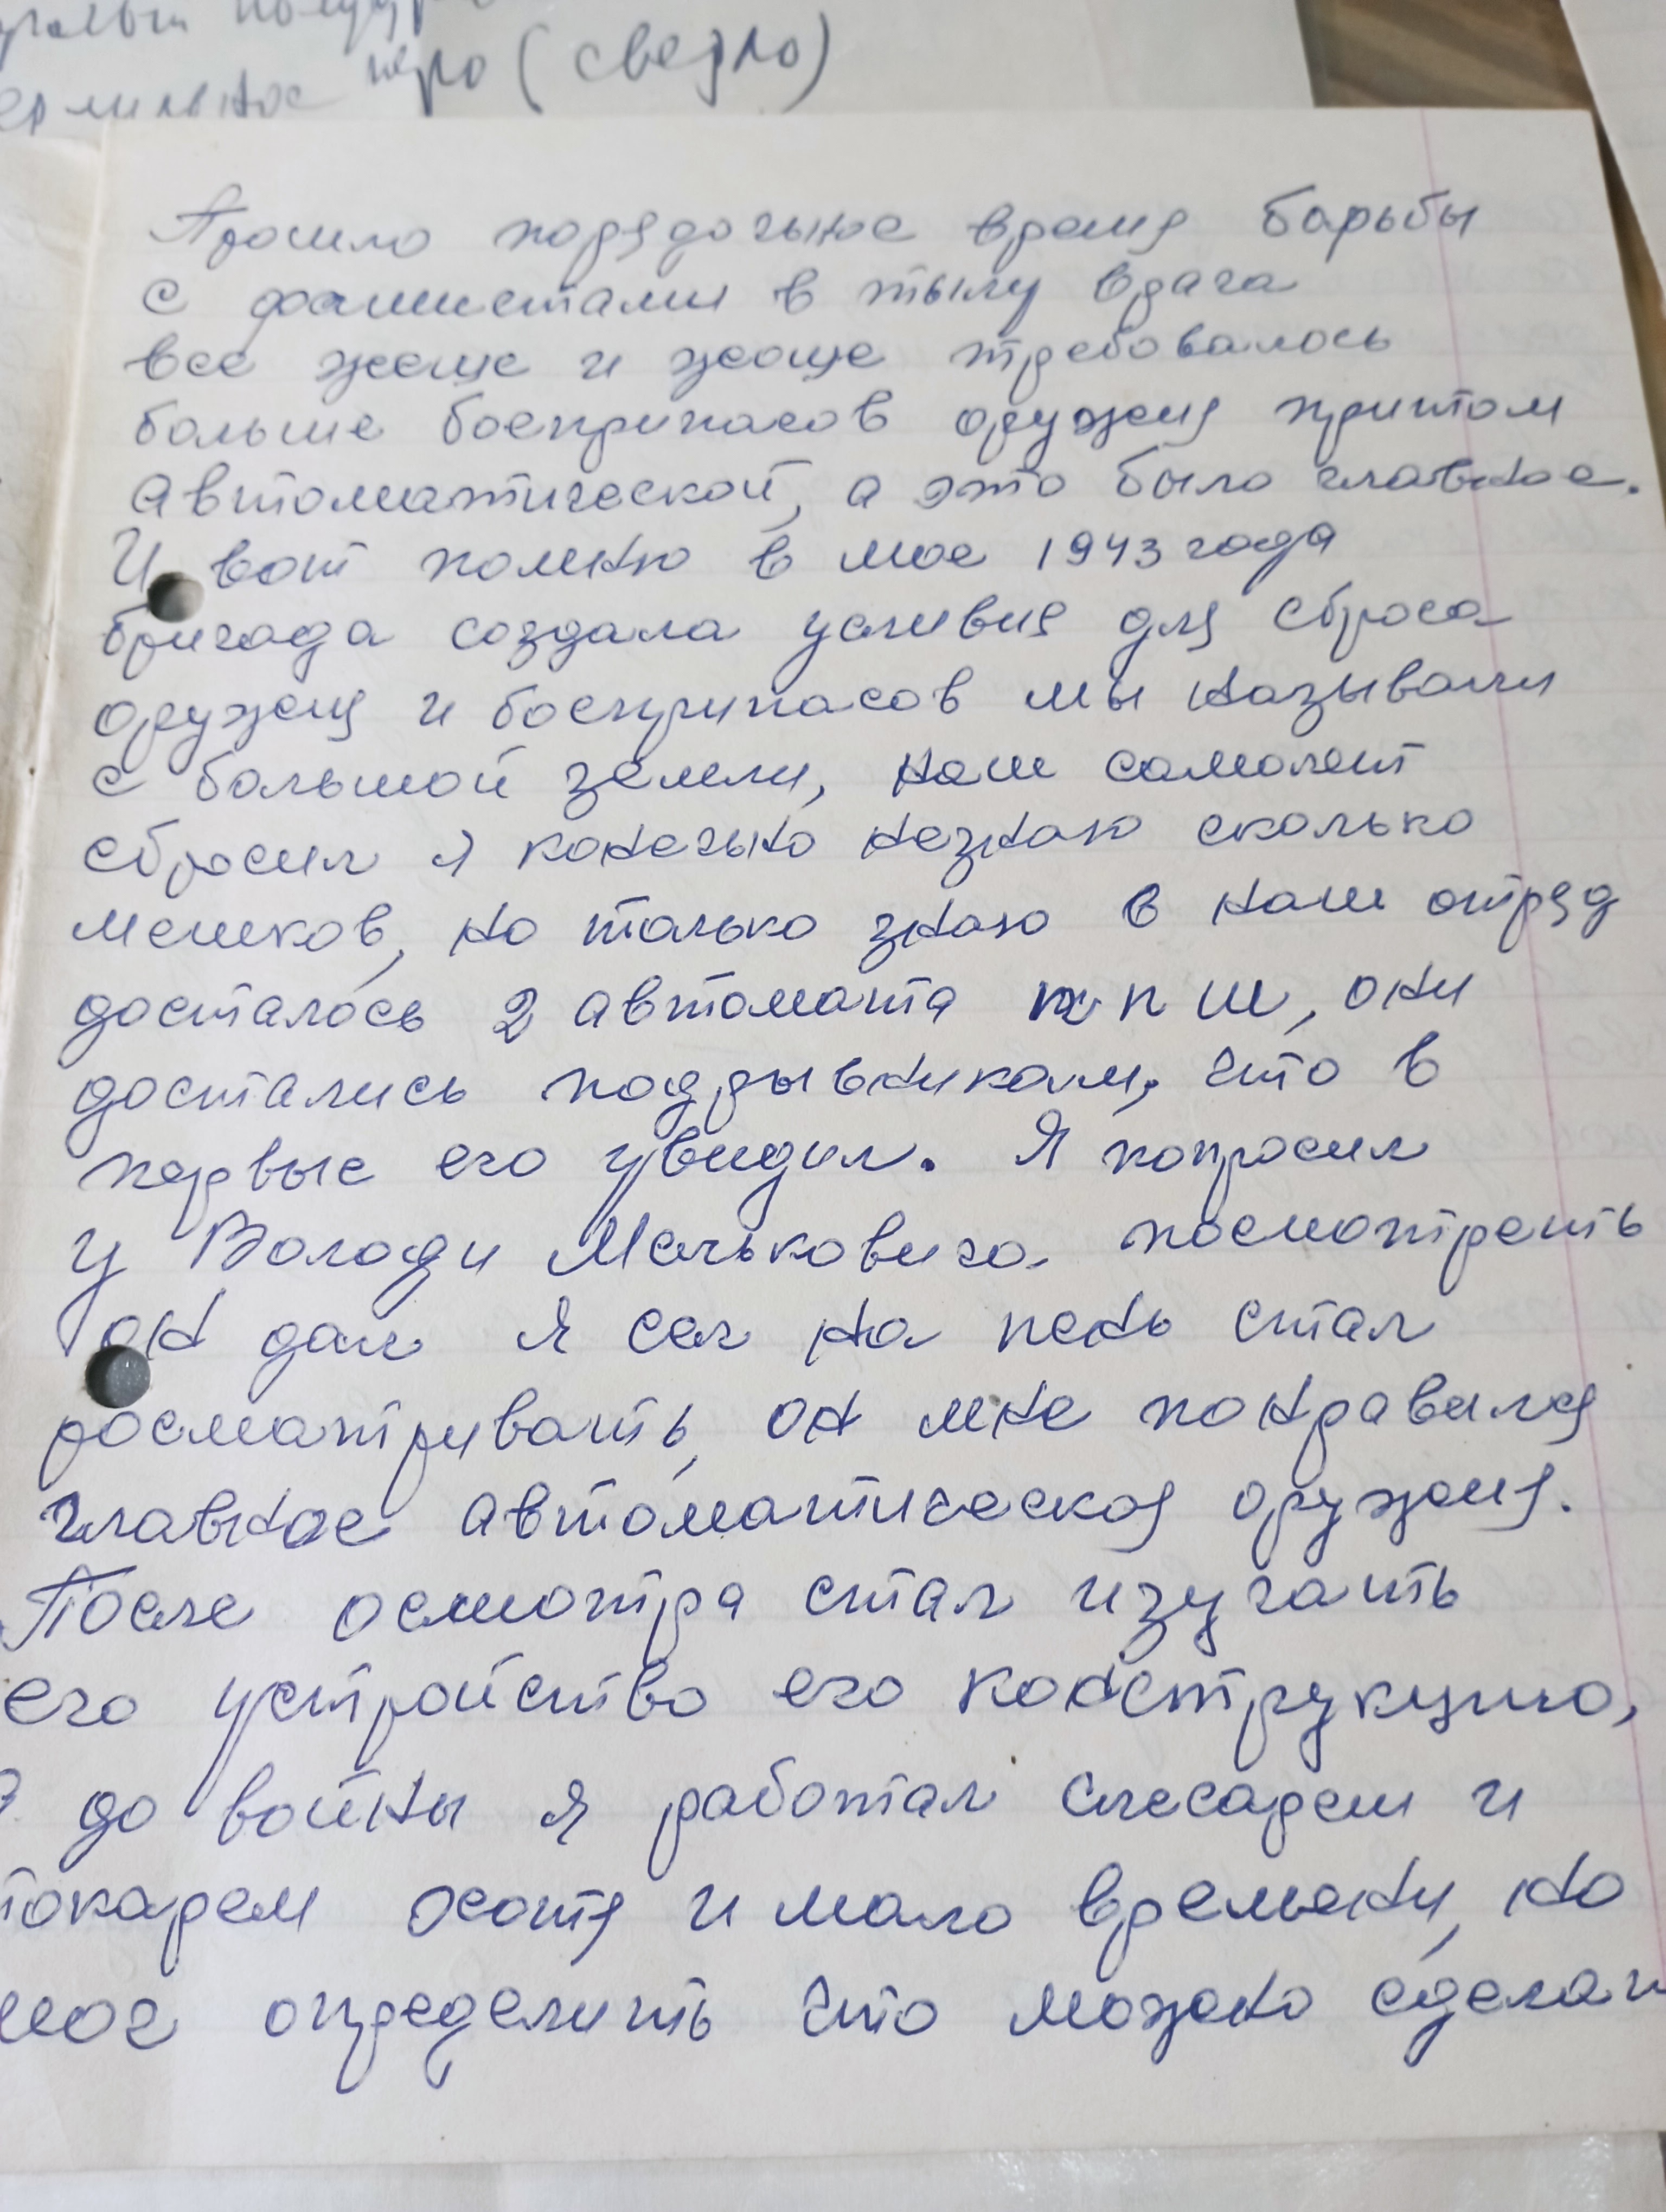 перо (сверло)
Прошло порядочное время барьбы
с фашистами в тылу врага
все жеще и жоще требовалось
больше боеприпасов оружея притом
автоматической, а это было главное.
И вот помню в мое 1943 года
бригада создала условия для сброса
оружея и боеприпасов мы называли
с большой земли, наш самолет
сбросил я конечно незнаю сколько
мешков, но только знаю в наш отряд
досталось 2 автомата ппш, они
достались подрывникам, что в
первые его увидил. Я попросил
у Володи Мельковича посмотреть
он дал я сел на пень стал
росматривать, он мне понравился
главное автоматическоя оружея.
После осмотра стал изучать
его устройство его конструкцию,
до войны я работал слесарем и
токарем хотя и мало времени, но
мог определить что можно сделат